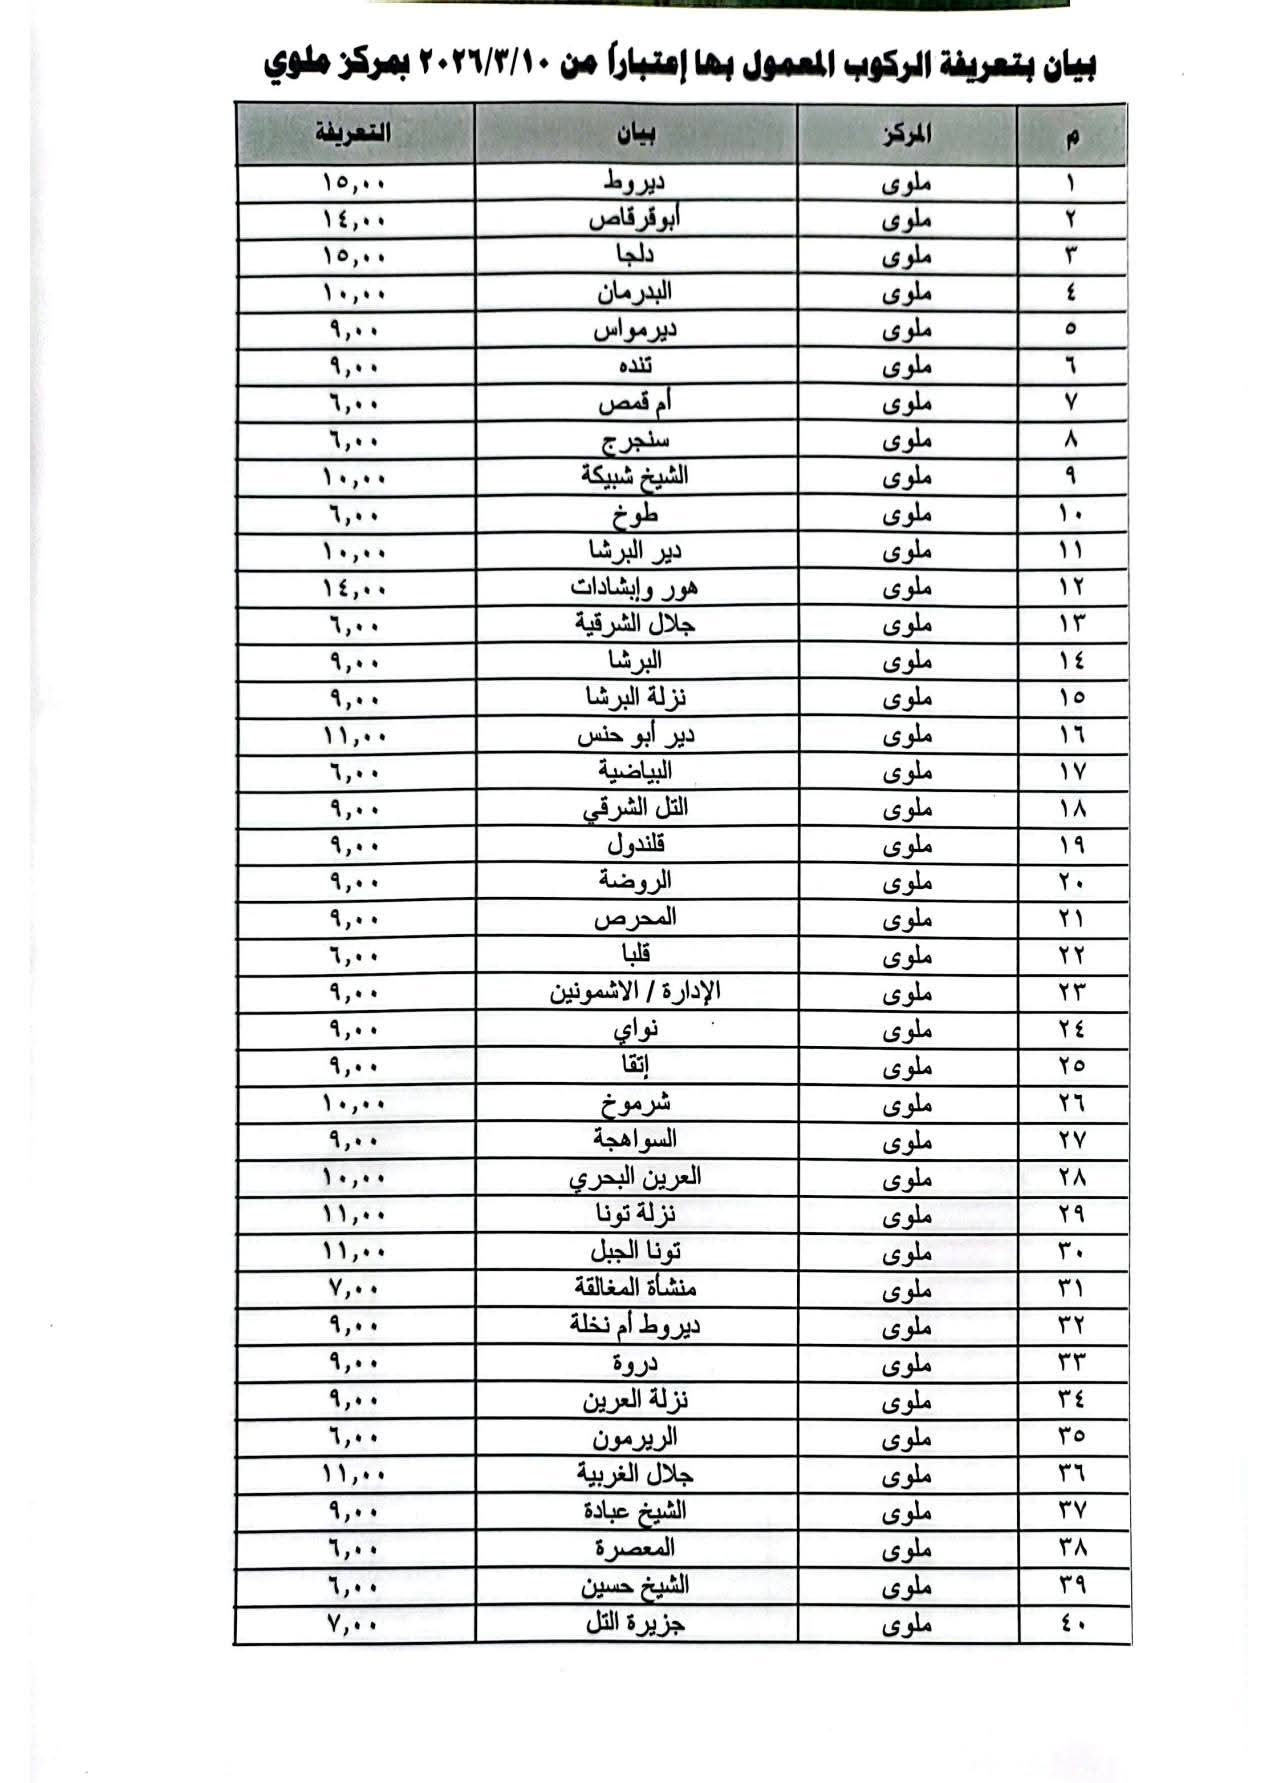 بيان بتعريفة الركوب المعمول بها إعتباراً من ٢٠٢٦/٣/١٠ بمركز ملوي
م المركز بيان التعريفة
١ ملوى ديروط ١٥,٠٠
٢ ملوى أبوقرقاص ١٤,٠٠
٣ ملوى دلجا ١٥,٠٠
٤ ملوى البدرمان ١٠,٠٠
٥ ملوى ديرمواس ٩,٠٠
٦ ملوى تنده ٩,٠٠
٧ ملوى أم قمص ٦,٠٠
٨ ملوى سنجرج ٦,٠٠
٩ ملوى الشيخ شبيكة ١٠,٠٠
١٠ ملوى طوخ ٦,٠٠
١١ ملوى دير البرشا ١٠,٠٠
١٢ ملوى هور وإبشادات ١٤,٠٠
١٣ ملوى جلال الشرقية ٦,٠٠
١٤ ملوى البرشا ٩,٠٠
١٥ ملوى نزلة البرشا ٩,٠٠
١٦ ملوى دير أبو حنس ١١,٠٠
١٧ ملوى البياضية ٦,٠٠
١٨ ملوى التل الشرقي ٩,٠٠
١٩ ملوى قلندول ٩,٠٠
٢٠ ملوى الروضة ٩,٠٠
٢١ ملوى المحرص ٩,٠٠
٢٢ ملوى قلبا ٦,٠٠
٢٣ ملوى الإدارة / الاشمونين ٩,٠٠
٢٤ ملوى نواي ٩,٠٠
٢٥ ملوى إتقا ٩,٠٠
٢٦ ملوى شرموخ ١٠,٠٠
٢٧ ملوى السواهجة ٩,٠٠
٢٨ ملوى العرين البحري ١٠,٠٠
٢٩ ملوى نزلة تونا ١١,٠٠
٣٠ ملوى تونا الجبل ١١,٠٠
٣١ ملوى منشأة المغالقة ٧,٠٠
٣٢ ملوى ديروط أم نخلة ٩,٠٠
٣٣ ملوى دروة ٩,٠٠
٣٤ ملوى نزلة العرين ٩,٠٠
٣٥ ملوى الريرمون ٦,٠٠
٣٦ ملوى جلال الغربية ١١,٠٠
٣٧ ملوى الشيخ عبادة ٩,٠٠
٣٨ ملوى المعصرة ٦,٠٠
٣٩ ملوى الشيخ حسين ٦,٠٠
٤٠ ملوى جزيرة التل ٧,٠٠